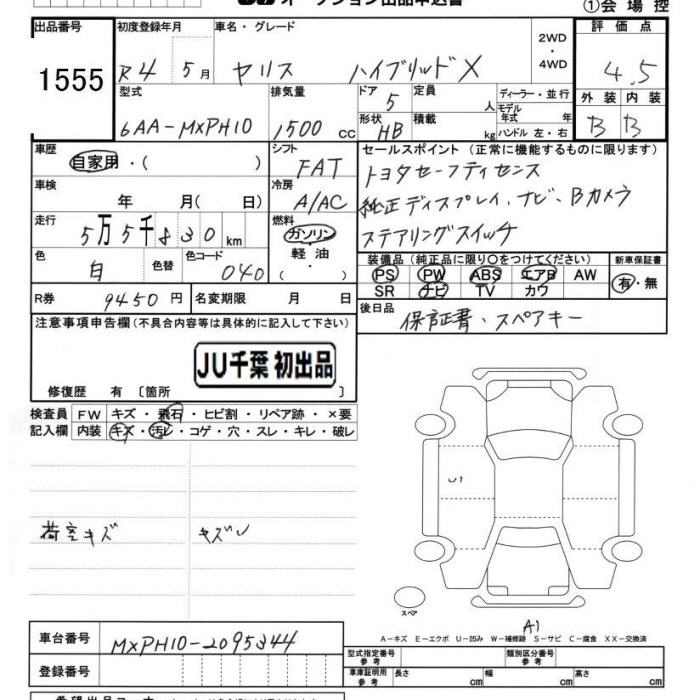 オークション出品申込書
①会場控
出品番号 初度登録年月 車名・グレード 2WD・4WD 評価点
1555 R4 5月 ヤリス ハイブリッドX 4.5
型式 排気量 ドア 定員 ディーラー・並行 外装 内装
6AA-MXPH10 1500cc 5 人 モデル年式 年 B B
形状 HB 積載 kg ハンドル 左・右
車歴 自家用・( ) シフト FAT
セールスポイント (正常に機能するものに限ります)
トヨタセーフティセンス
車検 年 月( 日) 冷房 A/AC
純正ディスプレイ、ナビ、Bカメラ
走行 5万5千830km 燃料 ガソリン・軽油・( )
ステアリングスイッチ
装備品 (純正品に限り○をつけてください) 新車保証書
色 白 色替 色コード 040
PS PW ABS エアB AW 有・無
SR ナビ TV カワ
R券 9450円 名変期限 月 日
後日品 保証書・スペアキー
注意事項申告欄 (不具合内容等は具体的に記入して下さい)
JU千葉 初出品
修復歴 有 〔箇所 〕
検査員 FW キズ・飛石・ヒビ割・リペア跡・×要
記入欄 内装 キズ・汚レ・コゲ・穴・スレ・キレ・破レ
U1
荷室キズ キズ
スペア
A1
A－キズ E－エクボ U－凹み W－補修跡 S－サビ C－腐食 XX－交換済
車台番号 MXPH10-2095344
型式指定番号 参考 類別区分番号 参考
登録番号
車庫証明用 参考 長さ cm 幅 cm 高さ cm